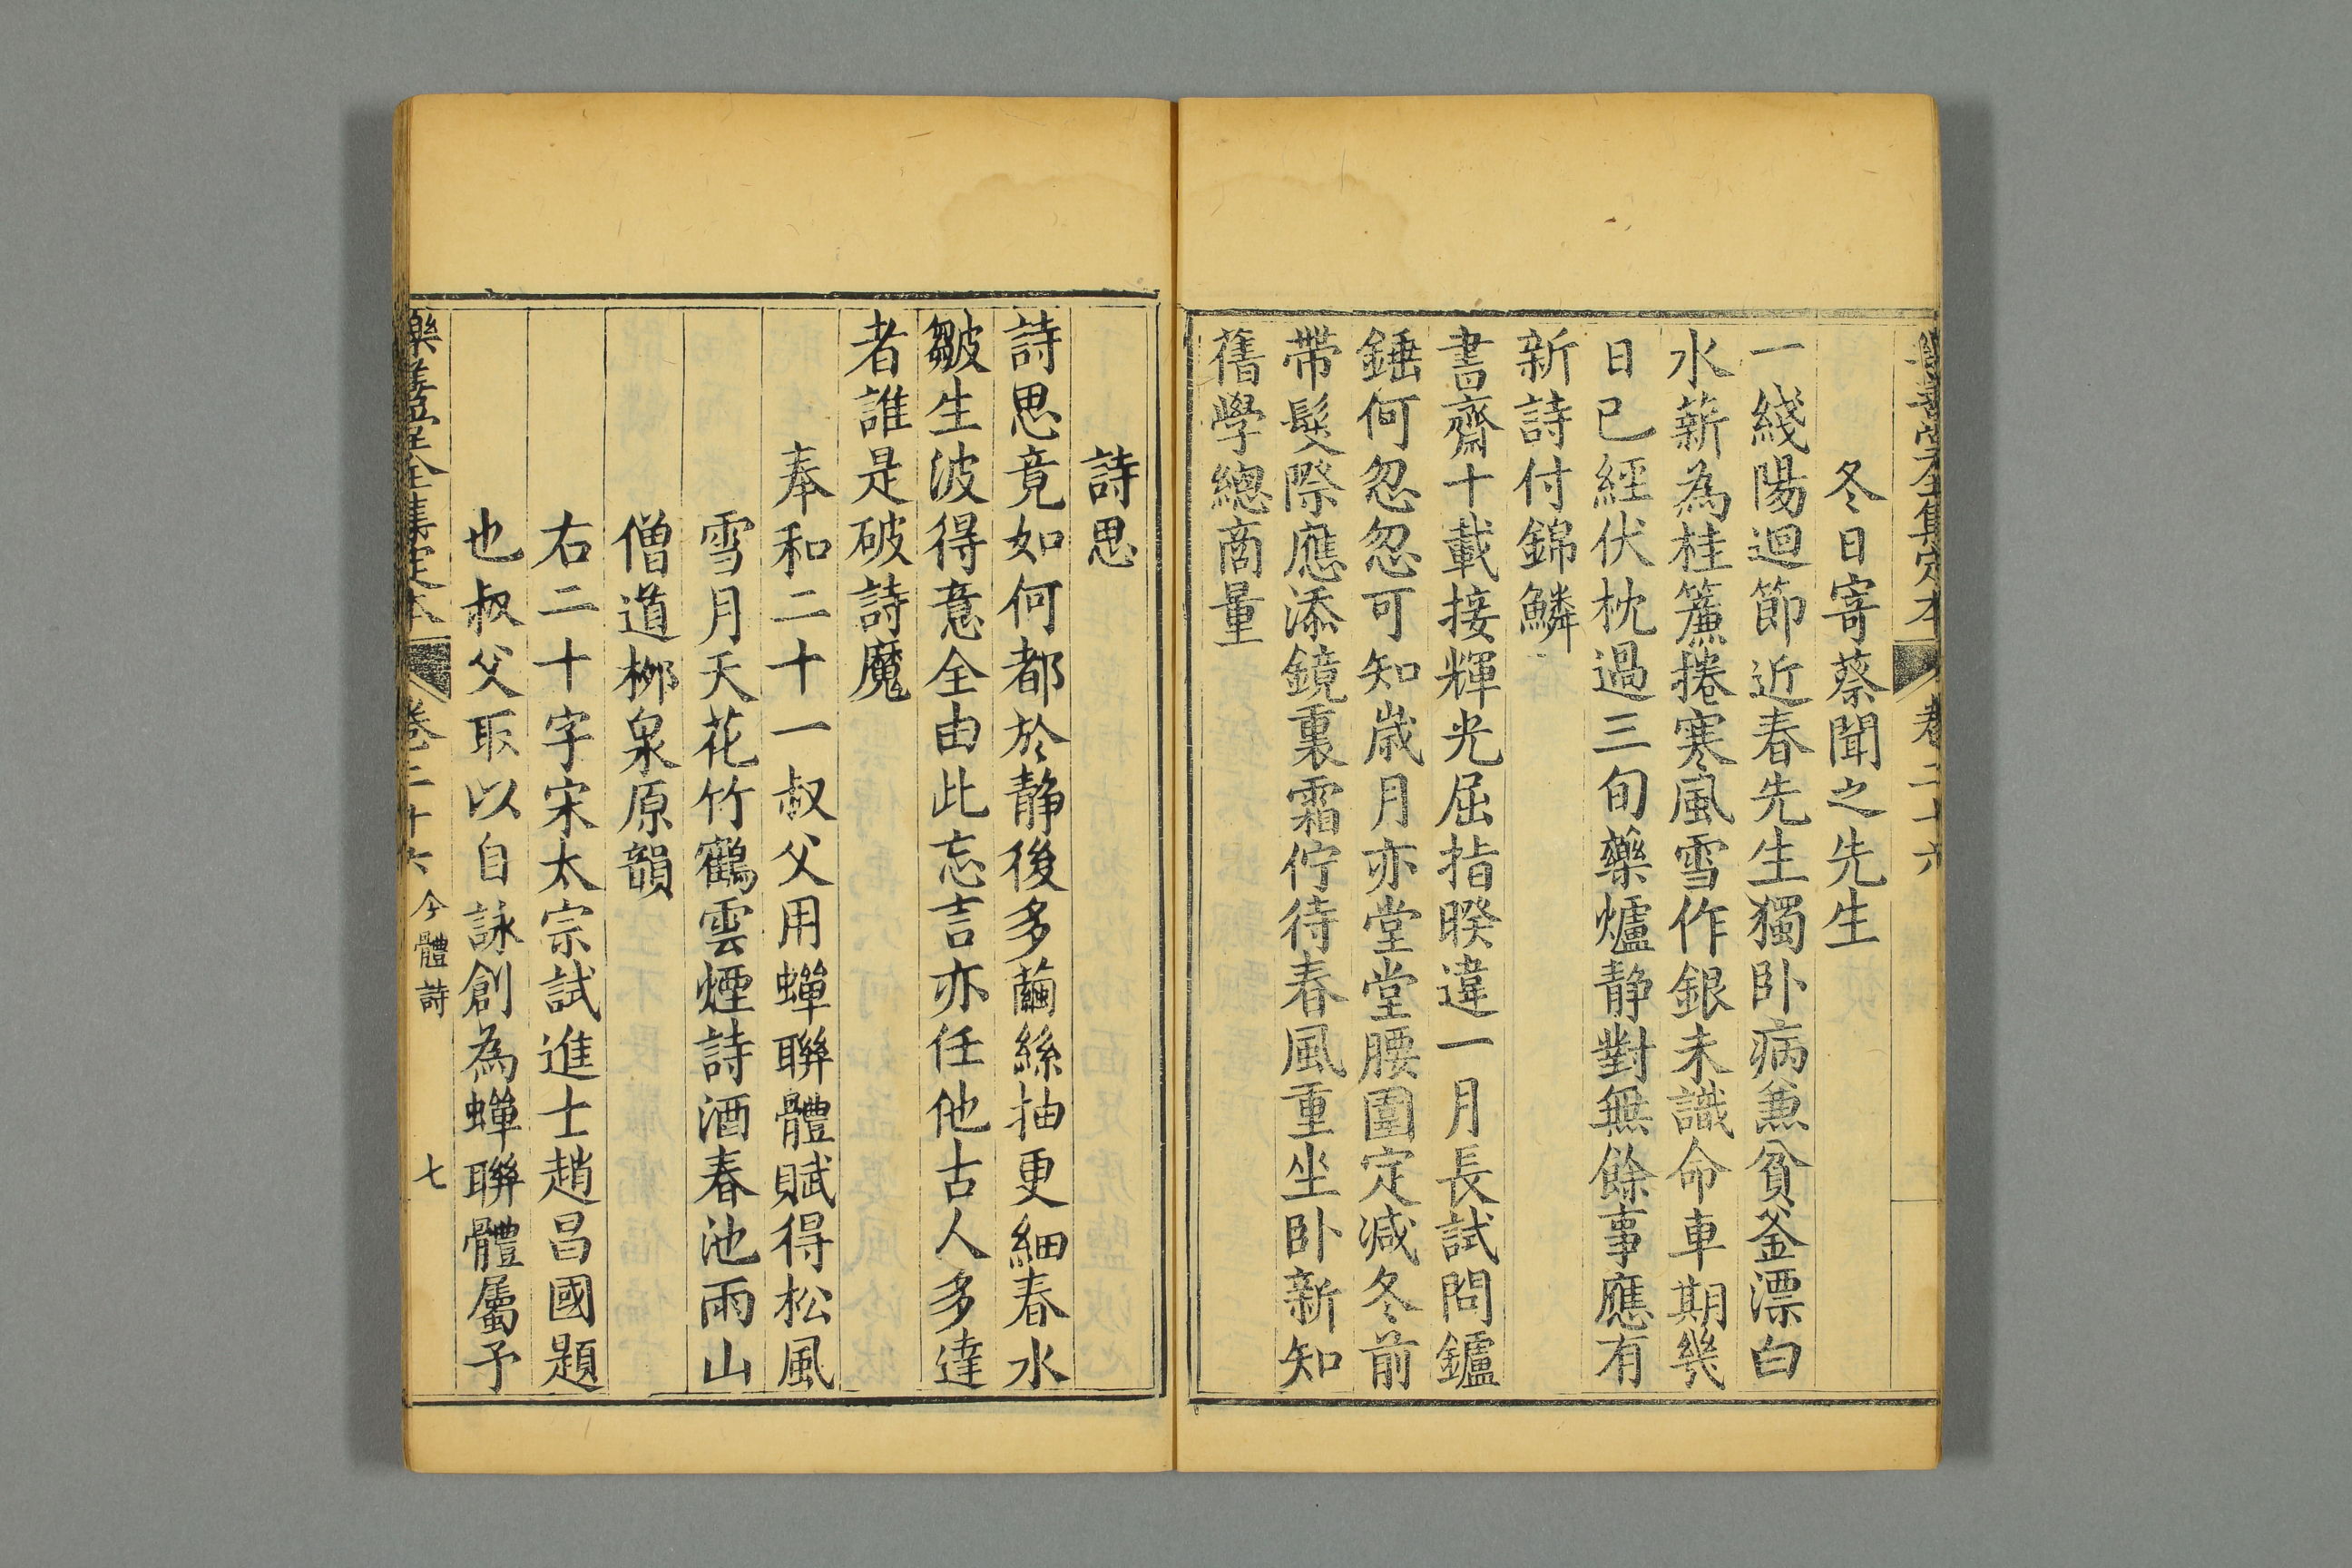 樂善堂全集定本 卷二十六
冬日寄蔡聞之先生
一綫陽迴節近春先生獨卧病兼貧釜漂白
水薪為桂簾捲寒風雪作銀未識命車期幾
日已經伏枕過三旬藥爐静對無餘事應有
新詩付錦鱗
書齋十載接輝光屈指暌違一月長試問鑪
錘何忽忽可知歲月亦堂堂腰圍定减冬前
帶鬂際應添鏡裏霜佇待春風重坐卧新知
舊學總商量
詩思
詩思竟如何都於静後多繭絲抽更細春水
皺生波得意全由此忘言亦任他古人多達
者誰是破詩魔
奉和二十一叔父用蟬聯體賦得松風
雪月天花竹鶴雲煙詩酒春池雨山
僧道柳泉原韻
右二十字宋太宗試進士趙昌國題
也叔父取以自詠創為蟬聯體屬予
樂善堂全集定本 卷二十六 今體詩 七